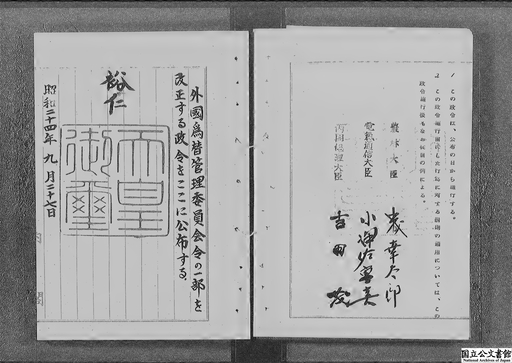 1 この政令は、公布の日から施行する。
2 この政令施行前にした行為に対する罰則の適用については、この
政令施行後もなお従前の例による。
農林大臣
森幸太郎
電気通信大臣
小沢佐重喜
内閣総理大臣
吉田茂
外國為替管理委員会令の一部を
改正する政令をここに公布する。
裕仁
天皇御璽
昭和二十四年九月二十七日
国立公文書館
National Archives of Japan